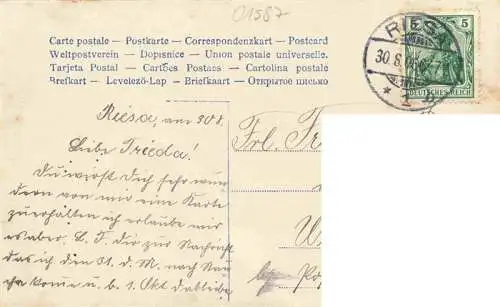 01587
Carte postale – Postkarte – Correspondenzkart – Postcard
Weltpostverein – Dopisnice – Union postale universelle.
Tarjeta Postal – Cartões Postaes – Cartolina postale
Brefkart – Levelező-Lap – Briefkaart – Открытое письмо
5 5
DEUTSCHES REICH
RIES
30.8.
* 1 b
Riesa, am 30 8.
Liebe Frieda!
Du wirst Dich sehr wun
dern von mir eine Karte
zu erhalten ich erlaube mir
es aber. L. F. Dir zur Nachricht
das ich den 31. d. M. nach Nau
komme u. b. 1 Okt dableibe
Frl. Fr
W
Po